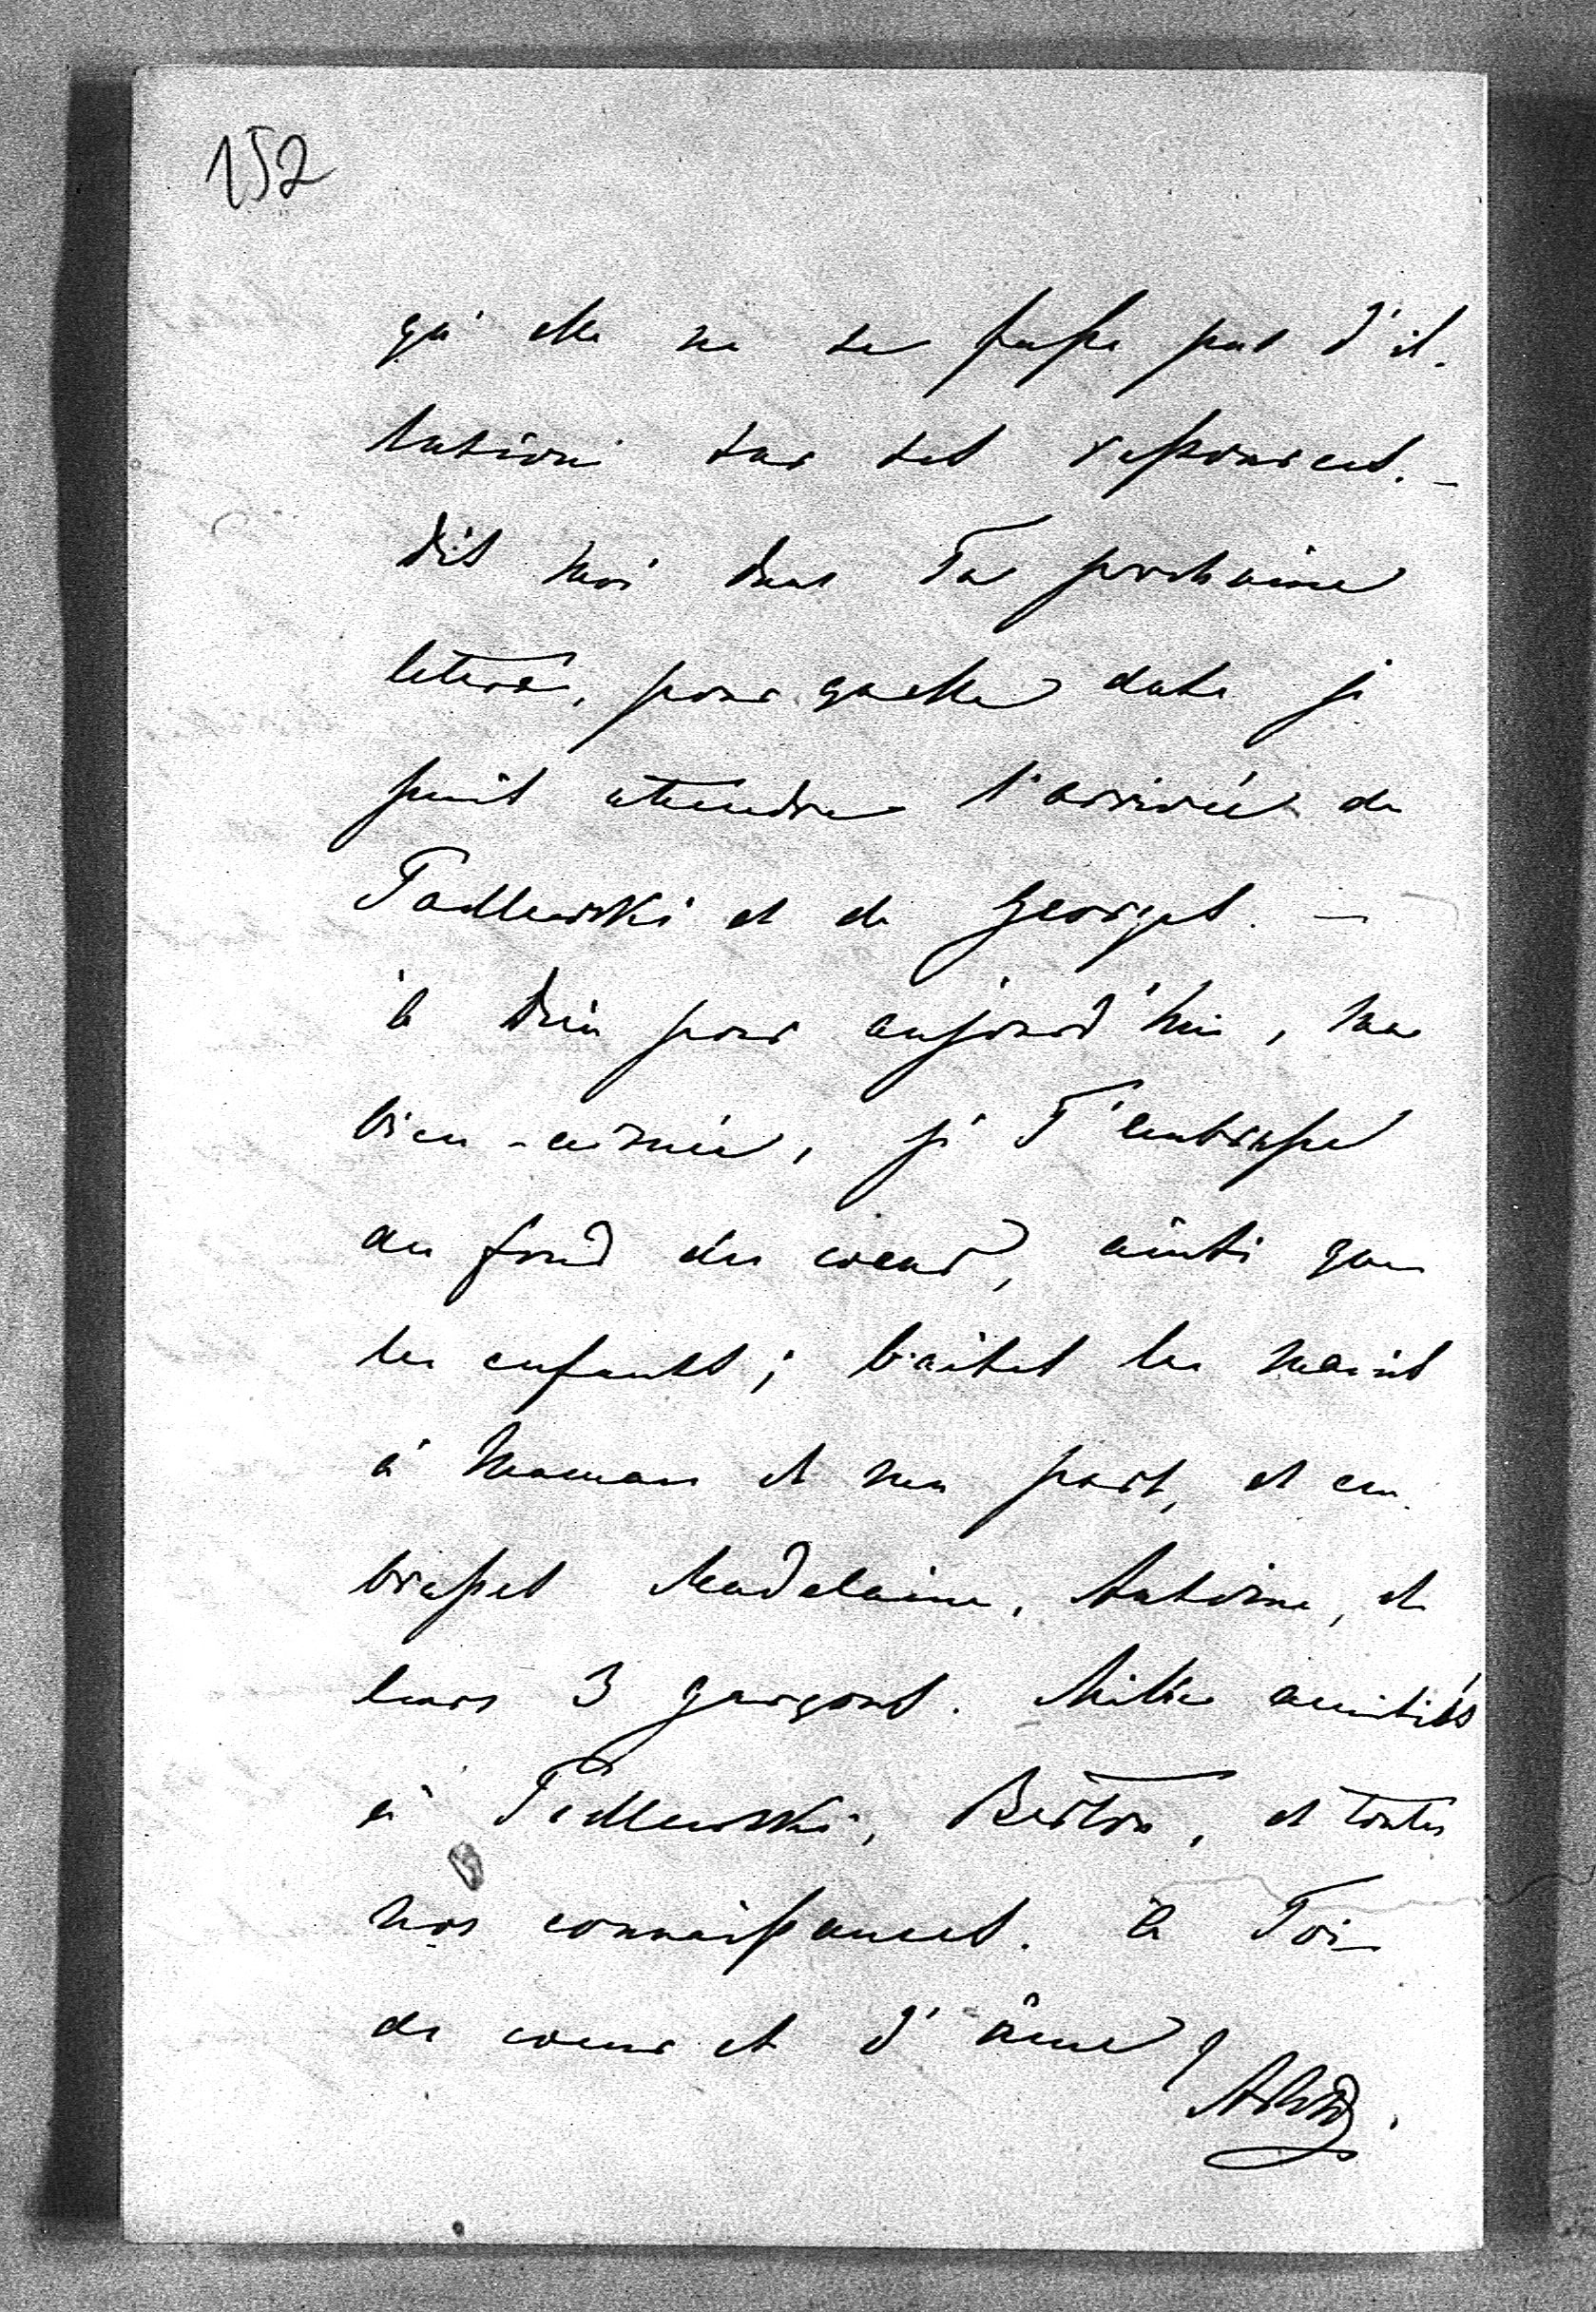 152
qu'elle ne se fasse pas d'il-
lusions sur ses ressources. –
dis moi dans Ta prochaine
lettre, pour quelle date je
puis attendre l'arrivée de
Padlewski et de Georges. –
à Dieu pour aujourd'hui, ma
bien-aimée, je T'embrasse
du fond du coeur, ainsi que
les enfants; baises les mains
à Maman et ma part, et em-
brasses Madelaine, Antoine, et
leurs 3 garçons. Mille amitiés
à Padlewski, Berton, et toutes
nos connaissances. à Toi
de coeur et d'âme